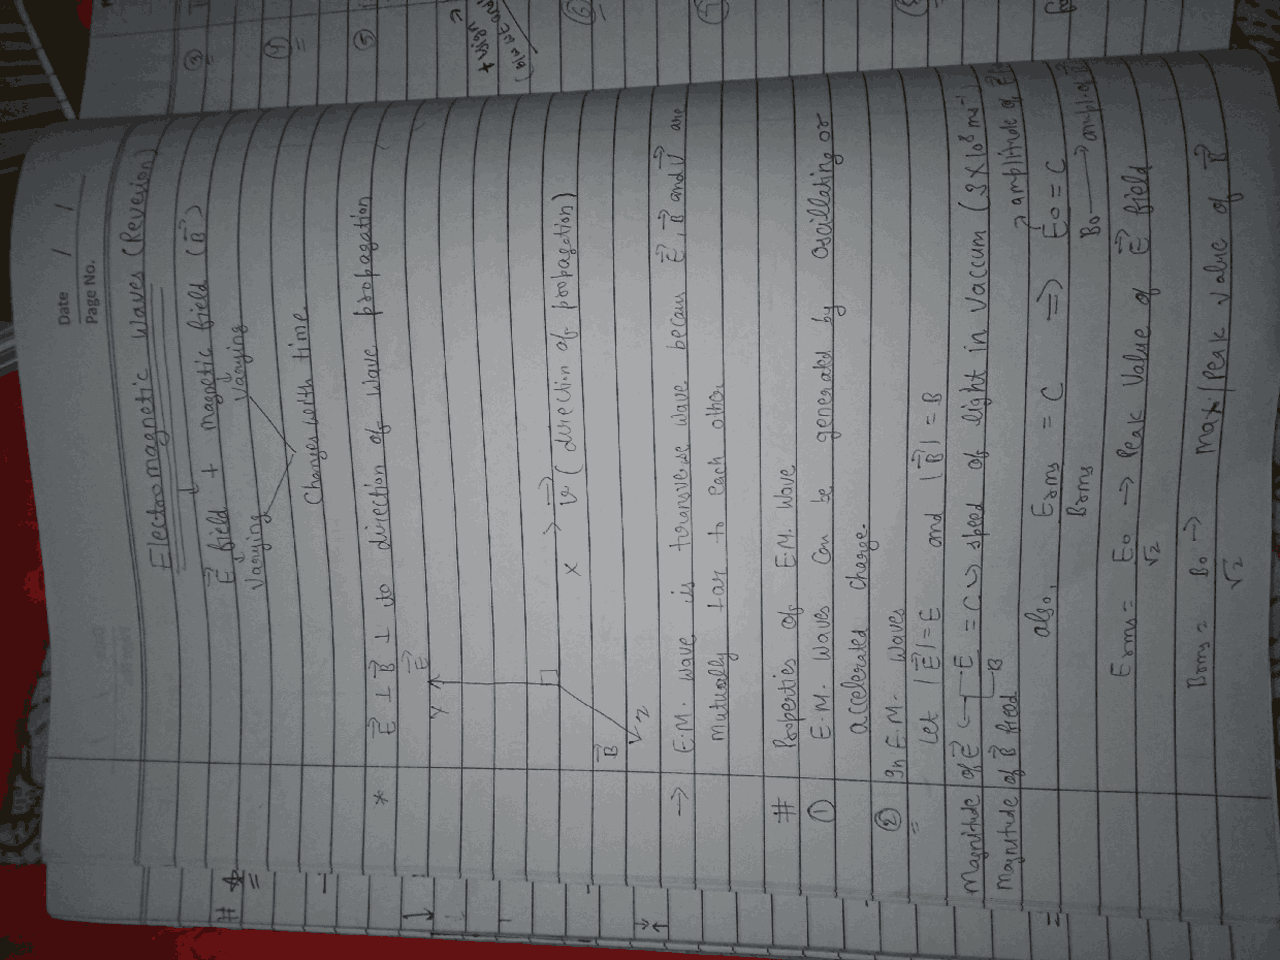 Date / /
Page No.
Electromagnetic Waves (Revesion)
E field + magnetic field (B)
Varying Varying
Changes with time
* E ⊥ B ⊥ to direction of wave propagation
Y E
X → v (direction of propagation)
B
Z
→ E.M. wave is transverse wave becaus E, B and V are
Mutually ⊥ar to each other
# Properties of E.M. Wave
① E.M. waves can be generated by oscillating or
accelerated charge.
② In E.M. waves
Let |E| = E and |B| = B
Magnitude of E ← E/B = C → speed of light in vaccum (3×10⁸ ms⁻¹)
Magnitude of B
also, Erms/Brms = C ⇒ E₀/B₀ = C
→ amplitude of E
→ ampli. of
Erms = E₀/√2 → Peak Value of E field
Brms = B₀/√2 → Max/Peak Value of B
③
④
⑤
+ sign →
⑥